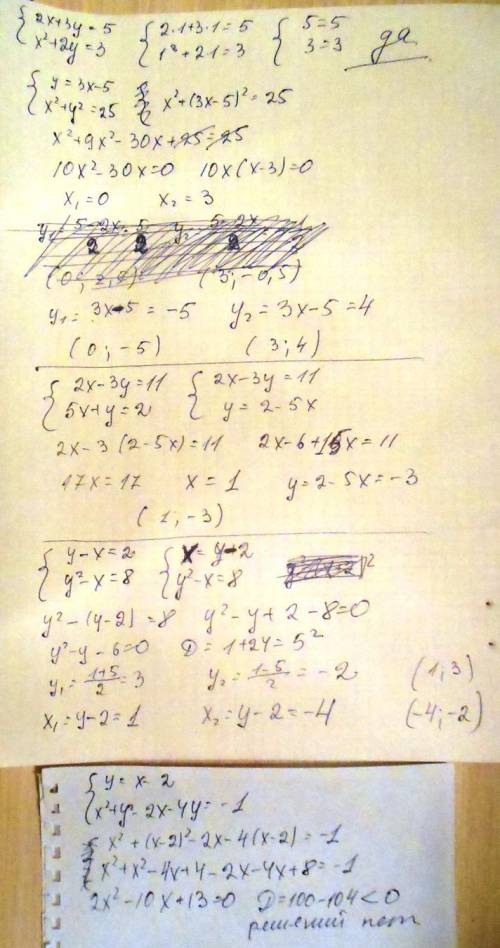 { 2x+3y=5 { 2·1+3·1=5 { 5=5
x²+2y=3 1²+2·1=3 3=3 да
{ y=3x-5
x²+y²=25 { x²+(3x-5)²=25
x²+9x²-30x+25=25
10x²-30x=0 10x(x-3)=0
x₁=0 x₂=3
(3; -0,5)
y₁= 3x-5 = -5 y₂=3x-5=4
(0; -5) (3; 4)
{ 2x-3y=11 { 2x-3y=11
5x+y=2 y=2-5x
2x-3(2-5x)=11 2x-6+15x=11
17x=17 x=1 y=2-5x=-3
(1; -3)
{ y-x=2 { x=y-2
y²-x=8 y²-x=8
y²-(y-2)=8 y²-y+2-8=0
y²-y-6=0 D=1+24=5²
y₁=(1+5)/2=3 y₂=(1-5)/2=-2 (1; 3)
x₁=y-2=1 x₂=y-2=-4 (-4; -2)
{ y=x-2
x²+y²-2x-4y=-1
x²+(x-2)²-2x-4(x-2)=-1
x²+x²-4x+4-2x-4x+8=-1
2x²-10x+13=0 D=100-104<0
решений нет